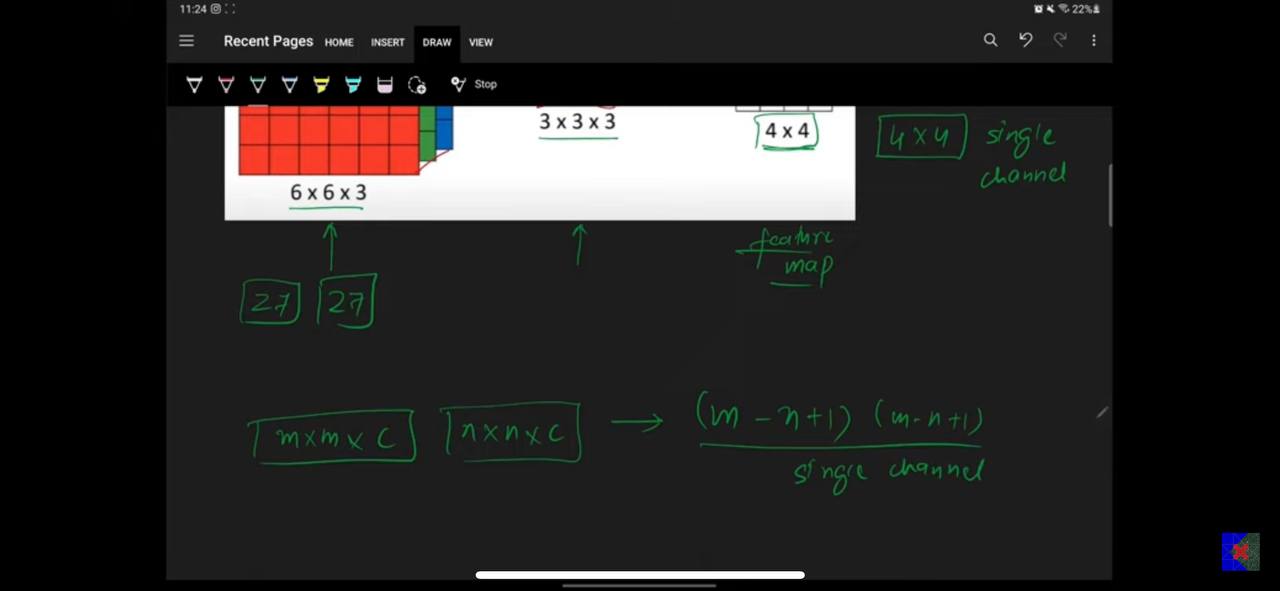 11:24
22%
Recent Pages HOME INSERT DRAW VIEW
Stop
3 x 3 x 3
4 x 4
4 x 4 single
channel
6 x 6 x 3
feature
map
27 27
m x m x c n x n x c → (m - n + 1) (m - n + 1)
single channel